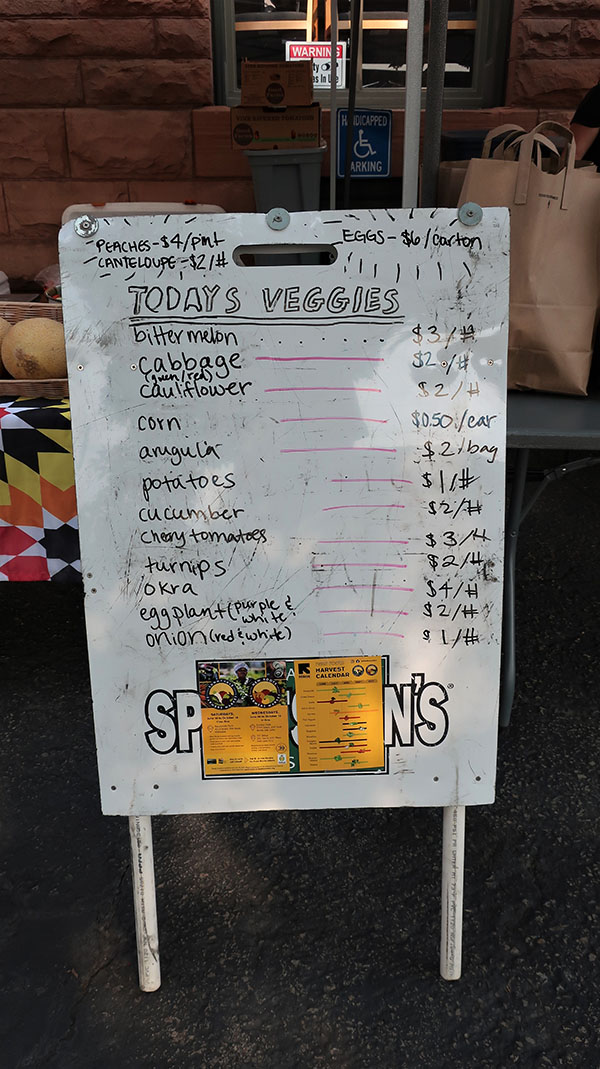 WARNING
HANDICAPPED
PARKING
-PEACHES-$4/pint
-CANTELOUPE-$2/#
EGGS-$6/carton
TODAYS VEGGIES
bitter melon . . . . . $3/#
cabbage $2/#
(green/red)
cauliflower $2/#
corn $0.50/ear
arugula $2/bag
potatoes $1/#
cucumber $2/#
cherry tomatoes $3/#
turnips $2/#
okra $4/#
eggplant (purple & white) $2/#
onion (red & white) $1/#
HARVEST
CALENDAR
SP N'S